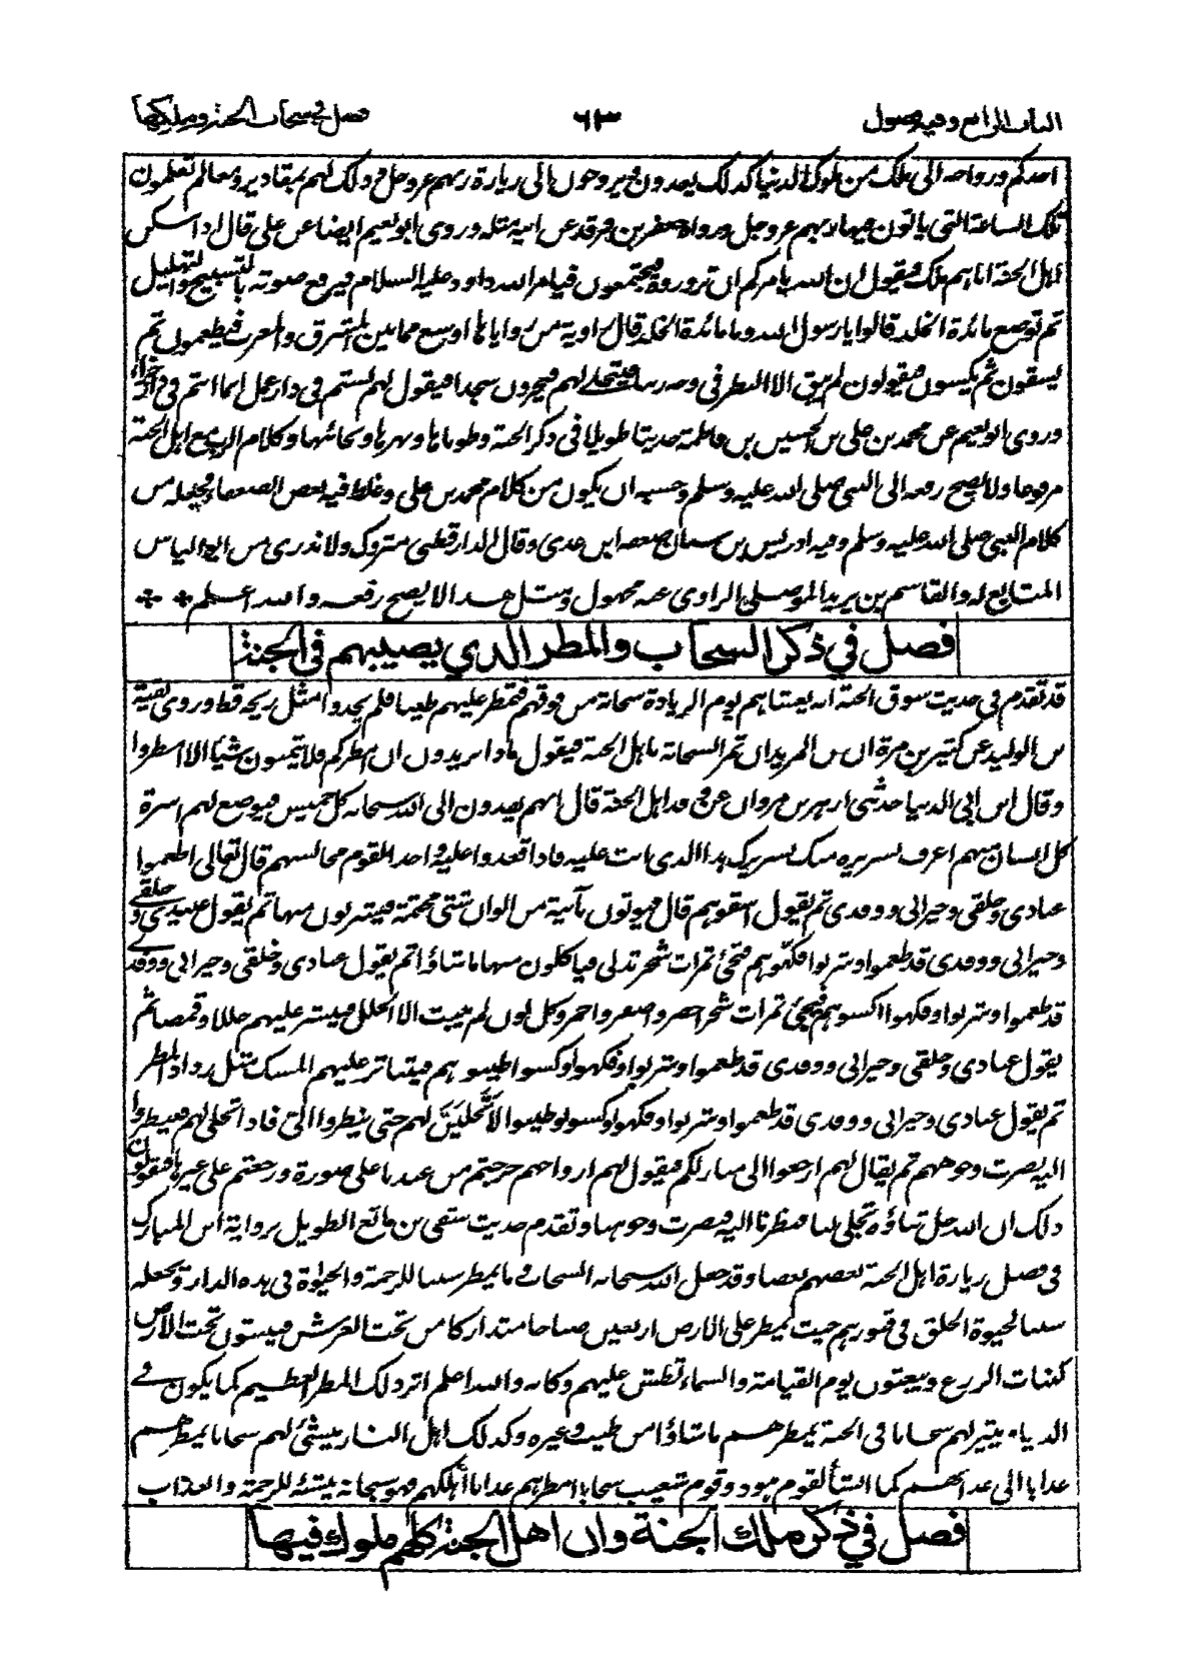 الباب الرابع وفيه فصول ٦٣ فصل في سحاب الجنة وملكها
احدكم ورواحه الى ملك من ملوك الدنيا كذلك يغدون ويروحون الى زيارة ربهم عزوجل وذلك لهم بمقادير ومعالم تعلمون
تلك الساعة التى ياتون فيها ربهم عزوجل ورواه جعفر بن فرقد عن ابيه مثله وروى ابو نعيم ايضا عن على قال اذا سكن
اهل الجنة اتاهم ملك فيقول ان الله يامركم ان تزوروه فيجتمعون فيامر الله داود عليه السلام فيرفع صوته بالتسبيح والتهليل
ثم توضع مائدة الخلد قالوا يارسول الله وما مائدة الخلد قال زاوية من زواياها اوسع مما بين المشرق والمغرب فيطعمون ثم
يسقون ثم يكسون فيقولون لم يبق الا النظر فى وجه ربنا فيتجلى لهم فيخرون سجدا فيقول لهم لستم فى دار عمل انما انتم فى دار جزاء
وروى ابو نعيم عن محمد بن على بن الحسين بن فاطمة حديثا طويلا فى ذكر الجنة وطوباها ونهرها وكلام الرب مع اهل الجنة
مرفوعا ولا يصح رفعه الى النبى صلى الله عليه وسلم وحسبه ان يكون من كلام محمد بن على وغلط فيه بعض الضعفاء فجعله من
كلام النبى صلى الله عليه وسلم وفيه ادريس بن سنان ضعفه ابن عدى وقال الدارقطنى متروك ولا ندرى من ابو الياس
المتابع له والقاسم بن يزيد الموصلى الراوى عنه مجهول ومثل هذا لا يصح رفعه والله اعلم
فصل في ذكر السحاب والمطر الذي يصيبهم في الجنة
قد تقدم فى حديث سوق الجنة انه يغشاهم يوم الزيادة سحابة من فوقهم فتمطر عليهم طيبا فلم يجدوا مثل ريحه قط وروى بقية
بن الوليد عن كثير بن مرة ان من المزيد ان تمر السحابة باهل الجنة فيقول ماذا تريدون ان امطركم فلا يتمنون شيئا الا امطروا
وقال ابن ابى الدنيا حدثنى ازهر بن مروان عن وفد اهل الجنة قال انهم يفدون الى الله سبحانه كل خميس فيوضع لهم اسرة
كل انسان منهم اعرف بسريره منك بسريرك هذا الذى انت عليه فاذا قعدوا عليه واخذ القوم مجالسهم قال تعالى اطعموا
عبادى وخلقى وجيرانى ووفدى ثم يقول اسقوهم قال فيؤتون بآنية من الوان شتى مختمة فيشربون منها ثم يقول عبيدى وخلقى
وجيرانى ووفدى قد طعموا وشربوا فكهوهم فتجئ ثمرات شجر تدلى فياكلون منها ماشاؤا ثم يقول عبادى وخلقى وجيرانى ووفدى
قد طعموا وشربوا وفكهوا اكسوهم فيجئ ثمرات شجر اخضر واصفر واحمر وكل لون لم تنبت الا الحلل فينشر عليهم حللا وقمصا ثم
يقول عبادى وخلقى وجيرانى ووفدى قد طعموا وشربوا وفكهوا وكسوا طيبوهم فيتناثر عليهم المسك مثل رذاذ المطر
ثم يقول عبادى وجيرانى ووفدى قد طعموا وشربوا وفكهوا وكسوا وطيبوا لاتجلين لهم حتى ينظروا الى فاذا تجلى لهم فينظروا
اليه نضرت وجوههم ثم يقال لهم ارجعوا الى منازلكم فيقول لهم ازواجهم خرجتم من عندنا على صورة ورجعتم على غيرها فيقولون
ذلك ان الله جل ثناؤه تجلى لنا فنظرنا اليه فنضرت وجوهنا وتقدم حديث شفى بن ماتع الطويل برواية ابن المبارك
فى فصل زيارة اهل الجنة بعضهم بعضا وقد جعل الله سبحانه السحاب وما يمطر سببا للرحمة والحيوة فى هذه الدار ويجعله
سببا لحيوة الخلق فى قبورهم حيث يمطر على الارض اربعين صباحا متداركا من تحت العرش فينبتون تحت الارض
كنبات الزرع ويبعثون يوم القيامة والسماء تطش عليهم وكانه والله اعلم اثر ذلك المطر العظيم كما يكون فى
الدنيا ويثير لهم سحابا فى الجنة يمطرهم ماشاؤا من طيب وغيره وكذلك اهل النار ينشئ لهم سحابا يمطرهم
عذابا الى عذابهم كما انشأ لقوم هود وقوم شعيب سحابا امطرهم عذابا اهلكهم فهو سبحانه ينشئه للرحمة والعذاب
فصل في ذكر ملك الجنة وان اهل الجنة كلهم ملوك فيها